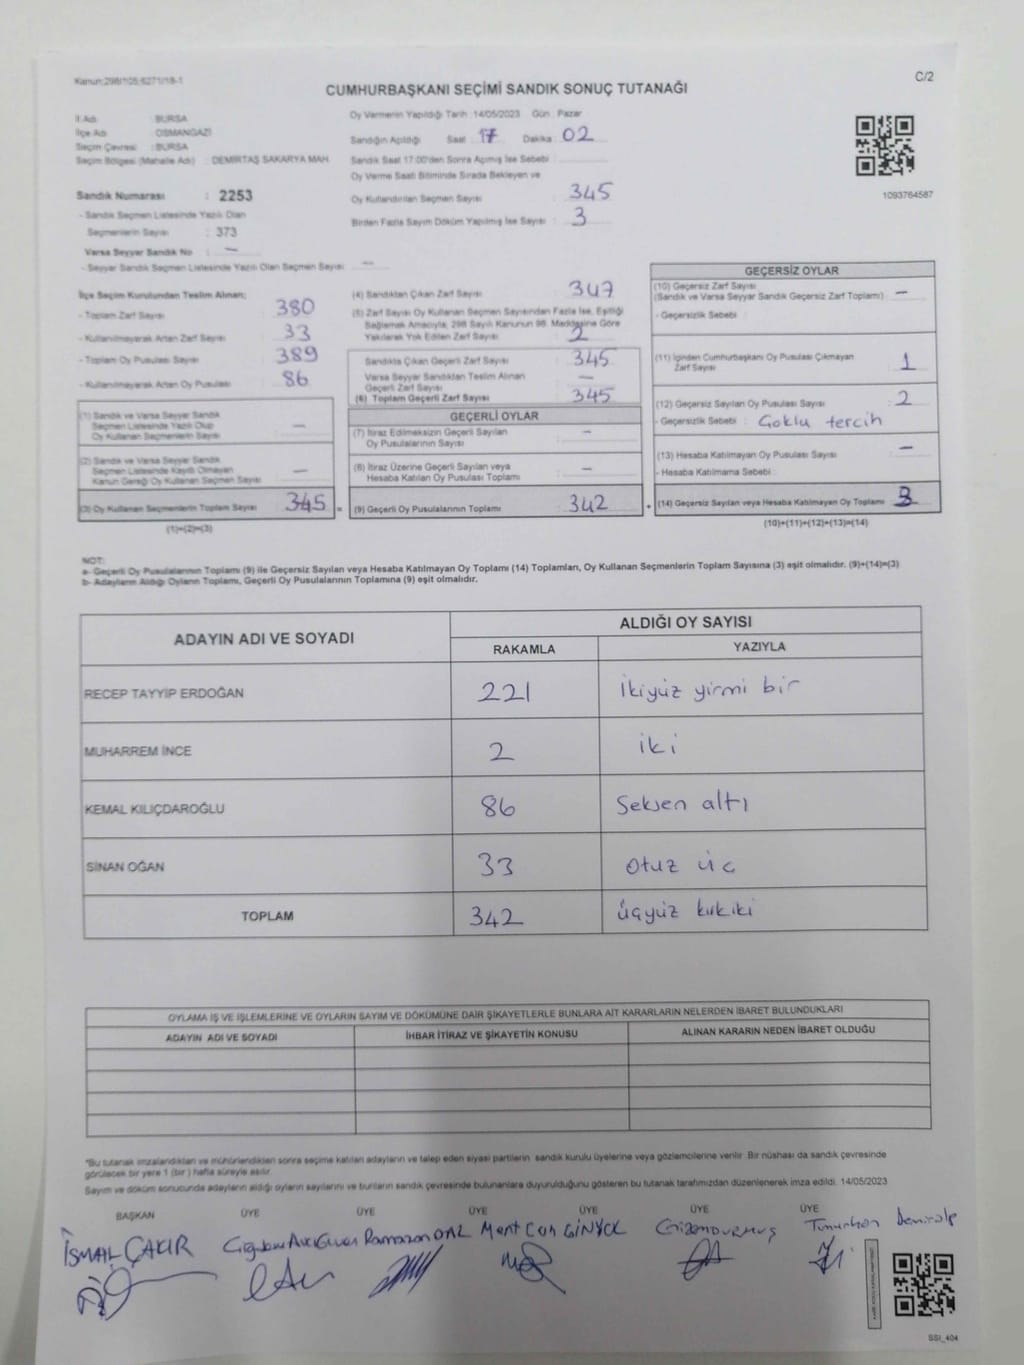 Kanun:298/105;6271/18-1
C/2
CUMHURBAŞKANI SEÇİMİ SANDIK SONUÇ TUTANAĞI
İl Adı : BURSA
İlçe Adı : OSMANGAZİ
Seçim Çevresi : BURSA
Seçim Bölgesi (Mahalle Adı) : DEMİRTAŞ SAKARYA MAH.
Sandık Numarası : 2253
- Sandık Seçmen Listesinde Yazılı Olan
Seçmenlerin Sayısı : 373
Varsa Seyyar Sandık No : —
- Seyyar Sandık Seçmen Listesinde Yazılı Olan Seçmen Sayısı : —
Oy Vermenin Yapıldığı Tarih :14/05/2023 Gün : Pazar
Sandığın Açıldığı Saat : 17 Dakika : 02
Sandık Saat 17:00'den Sonra Açılmış İse Sebebi :
Oy Verme Saati Bitiminde Sırada Bekleyen ve
Oy Kullandırılan Seçmen Sayısı : 345
Birden Fazla Sayım Döküm Yapılmış İse Sayısı : 3
1093764587
İlçe Seçim Kurulundan Teslim Alınan;
- Toplam Zarf Sayısı : 380
- Kullanılmayarak Artan Zarf Sayısı : 33
- Toplam Oy Pusulası Sayısı : 389
- Kullanılmayarak Artan Oy Pusulası : 86
(1) Sandık ve Varsa Seyyar Sandık
Seçmen Listesinde Yazılı Olup
Oy Kullanan Seçmenlerin Sayısı —
(2) Sandık ve Varsa Seyyar Sandık
Seçmen Listesinde Kayıtlı Olmayan
Kanun Gereği Oy Kullanan Seçmen Sayısı —
(3) Oy Kullanan Seçmenlerin Toplam Sayısı 345 =
(1)+(2)=(3)
(4) Sandıktan Çıkan Zarf Sayısı : 347
(5) Zarf Sayısı Oy Kullanan Seçmen Sayısından Fazla İse, Eşitliği
Sağlamak Amacıyla, 298 Sayılı Kanunun 98. Maddesine Göre
Yakılarak Yok Edilen Zarf Sayısı : 2
Sandıkta Çıkan Geçerli Zarf Sayısı : 345
Varsa Seyyar Sandıktan Teslim Alınan
Geçerli Zarf Sayısı : —
(6) Toplam Geçerli Zarf Sayısı : 345
GEÇERLİ OYLAR
(7) İtiraz Edilmeksizin Geçerli Sayılan
Oy Pusulalarının Sayısı : —
(8) İtiraz Üzerine Geçerli Sayılan veya
Hesaba Katılan Oy Pusulası Toplamı : —
(9) Geçerli Oy Pusulalarının Toplamı : 342 +
GEÇERSİZ OYLAR
(10) Geçersiz Zarf Sayısı
(Sandık ve Varsa Seyyar Sandık Geçersiz Zarf Toplamı) : —
- Geçersizlik Sebebi :
(11) İçinden Cumhurbaşkanı Oy Pusulası Çıkmayan
Zarf Sayısı : 1
(12) Geçersiz Sayılan Oy Pusulası Sayısı : 2
- Geçersizlik Sebebi : Çoklu tercih
(13) Hesaba Katılmayan Oy Pusulası Sayısı : —
- Hesaba Katılmama Sebebi :
(14) Geçersiz Sayılan veya Hesaba Katılmayan Oy Toplamı : 3
(10)+(11)+(12)+(13)=(14)
NOT:
a- Geçerli Oy Pusulalarının Toplamı (9) ile Geçersiz Sayılan veya Hesaba Katılmayan Oy Toplamı (14) Toplamları, Oy Kullanan Seçmenlerin Toplam Sayısına (3) eşit olmalıdır. (9)+(14)=(3)
b- Adayların Aldığı Oyların Toplamı, Geçerli Oy Pusulalarının Toplamına (9) eşit olmalıdır.
ADAYIN ADI VE SOYADI
ALDIĞI OY SAYISI
RAKAMLA YAZIYLA
RECEP TAYYİP ERDOĞAN 221 ikiyüz yirmi bir
MUHARREM İNCE 2 iki
KEMAL KILIÇDAROĞLU 86 Seksen altı
SİNAN OĞAN 33 otuz üç
TOPLAM 342 üçyüz kırkiki
OYLAMA İŞ VE İŞLEMLERİNE VE OYLARIN SAYIM VE DÖKÜMÜNE DAİR ŞİKAYETLERLE BUNLARA AİT KARARLARIN NELERDEN İBARET BULUNDUKLARI
ADAYIN ADI VE SOYADI İHBAR İTİRAZ VE ŞİKAYETİN KONUSU ALINAN KARARIN NEDEN İBARET OLDUĞU
"Bu tutanak imzalandıktan ve mühürlendikten sonra seçime katılan adayların ve talep eden siyasi partilerin sandık kurulu üyelerine veya gözlemcilerine verilir. Bir nüshası da sandık çevresinde
görülecek bir yere 1 (bir) hafta süreyle asılır.
Sayım ve döküm sonucunda adayların aldığı oyların sayılarını ve bunların sandık çevresinde bulunanlara duyurulduğunu gösteren bu tutanak tarafımızdan düzenlenerek imza edildi. 14/05/2023
BAŞKAN ÜYE ÜYE ÜYE ÜYE ÜYE ÜYE
İSMAİL ÇAKIR Ramazan Mert Can Demiralp
SSI_404